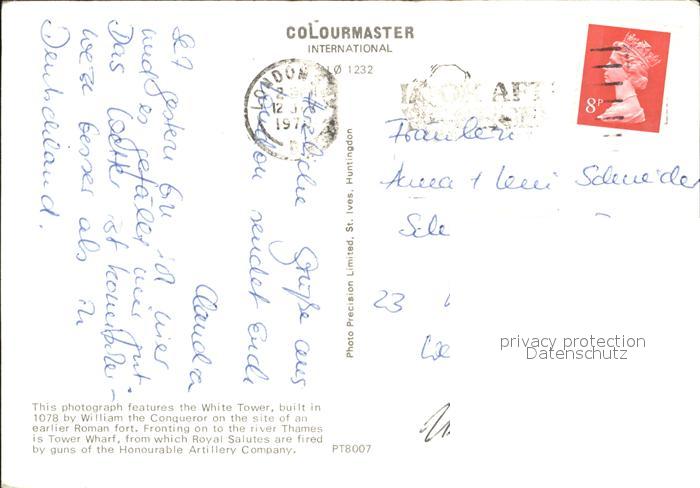 COLOURMASTER
INTERNATIONAL
LONDON
1232
8P
Fräulein
Anna + Leni Schneider
23
Herzliche Grüße aus
London sendet Euch
Claudia
Seit gestern bin ich hier
und es gefällt mir gut.
Das Wetter ist
besser als in
Deutschland.
Photo Precision Limited, St. Ives, Huntingdon
privacy protection
Datenschutz
This photograph features the White Tower, built in
1078 by William the Conqueror on the site of an
earlier Roman fort. Fronting on to the river Thames
is Tower Wharf, from which Royal Salutes are fired
by guns of the Honourable Artillery Company.
PT8007